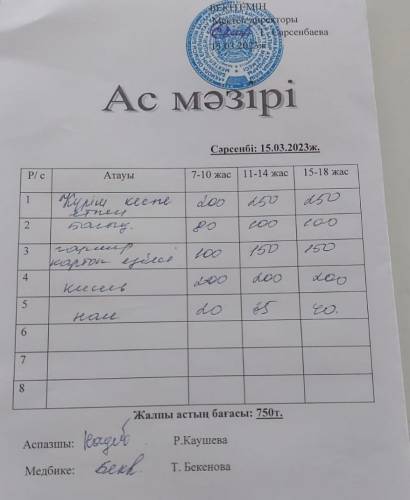 БЕКІТЕМІН
Мектеп директоры
Г. Сарсенбаева
15.03.2023ж
Ас мәзірі
Сәрсенбі: 15.03.2023ж.
Р/ с Атауы 7-10 жас 11-14 жас 15-18 жас
1 Күріш кеспе 200 250 250
етпен
2 балық. 80 100 100
3 гарнир 100 150 150
картоп езбесі
4 кисель 200 200 200
5 нан 20 35 40.
6
7
8
Жалпы астың бағасы: 750т.
Аспазшы: Р.Каушева
Медбике: Бекв Т. Бекенова